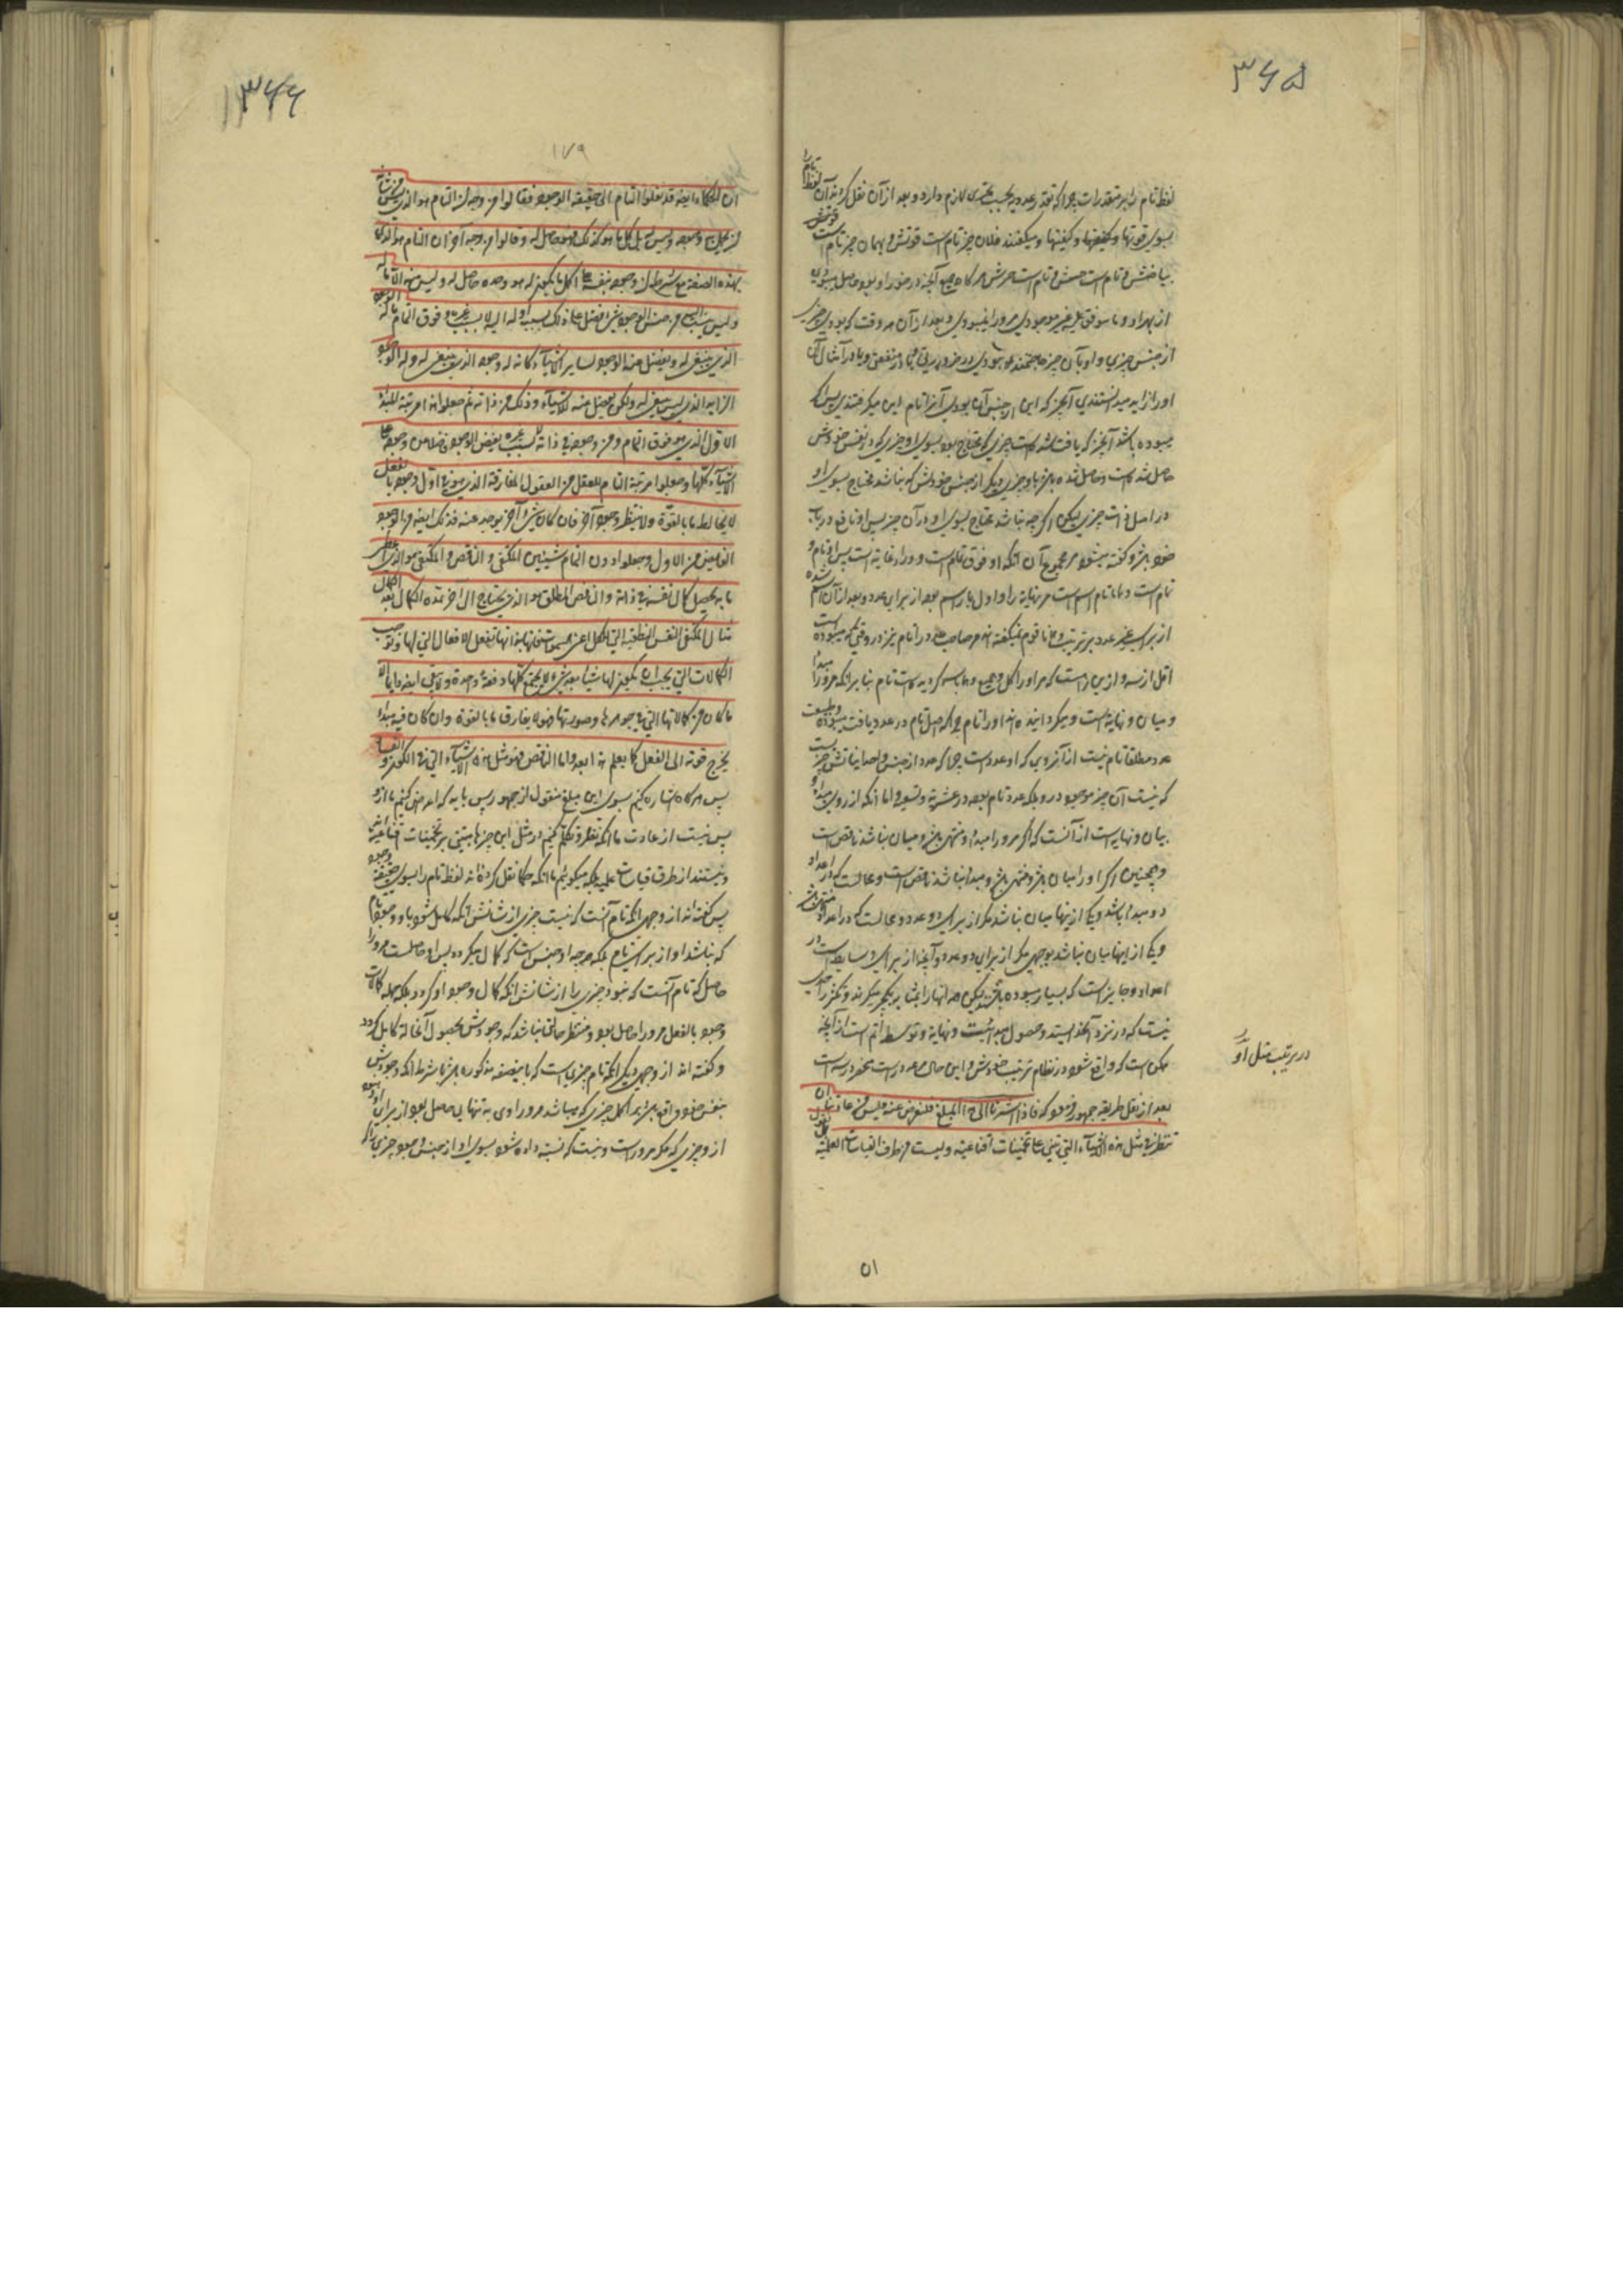 ۳۶۵
لفظ تام را بر متقدرات چرا که تقدر عددیه بحسب تحدی لازم دارد و بعد از آن نقل کرده‌اند آن لفظ تام را
بسوی قوتها و کیفیتها و میگفتند فلان چیز تام است قوتش و بهمان چیز تام است
بیاضش و تام است حسنش و تام است هرگاه جمیع آنچه در خور او بود حاصل بودی
از بهر او و ما سوی غیر موجودی مر او را نبودی و بعد از آن هر وقت که بودی چیزی
از جنس چیزی و او بآن چیز محتاج نبودی در ضرورتی یا در منفعتی و یا در امثال آن
او را زاید میدانستندی آنچیز که این از جنس آن بودی آنرا تام این میگرفتندی پس اگر
بوده باشد آنچیز که یافت شده است چیزی که محتاج بود بسوی او چیزی که در نفس خودش
حاصل شده است و حاصل شده باشد با او چیزی دیگر از جنس خودش که نباشد محتاج بسوی او
در اصل ذات چیزی لیکن اگر چه نباشد محتاج بسوی او در آن چیز پس او نافع در باب
خود باشد گفته میشود مر مجموع آن که او فوق تمام است و ورای غایت است پس او تام و
تام است و تام اسم است مر نهایة را و اول بار اسم بود از برای عدد و بعد از آن اسم شده
از برای غیر عدد بترتیب و همانا قوم نمیگفته‌اند مر صاحب عدد را تام نیز در وقتی که میبوده است
اقل از سه و ازین راه است که مر او را کل و جمیع و تام نام کرده است تام بنابر آنکه مر او را مبدأ
و میان و نهایة است و میگردانیده‌اند او را تام چرا که اصل تام در عدد یافت میبوده و طبیعت
عدد مطلقا تام نیست از آنروی که او عدد است چرا که عدد از جنس واحدیاتش چیزیست
که نیست آن چیز موجود در او بلکه عدد تام بود در عشریة و تسعیة و اما آنکه از روی مبدأ و
میان و نهایة است از آنست که اگر مر او را مبدأ و منتهی باشد و میان نباشد ناقص است
و همچنین اگر او را میان باشد و منتهی باشد و مبدأ نباشد ناقص است و محالست که در اعداد
دو مبدأ باشد و یکی از اینها میان نباشد مگر از برای دو عدد و محالست که در اعداد دو منتهی باشد
و یکی از اینها میان نباشد بوجهی مگر از برای دو عدد و آنچه از برای وسایط است در
اعداد و جایز است که بسیار بوده باشند لیکن همه آنها را بمثابه یکچیز میگیرند و تکثر را حدی
نیست که در نزد آنحد ایستد و حصول مبدأیت و نهایة و توسط اتم است از آنچه
ممکن است که واقع شود در نظام ترتیب خودش و این حال هم عدد راست منحصر در سه است
در ترتیب مثل او
بعد از نقل طریقه جمهور فرمود که فاذا اشرنا الی هذا المبلغ فلنعرض عنه فلیس من عاداتنا ان
ننظر فی مثل هذه الاشیاء التی تبنی علی تخمینات اقناعیة و لیست من طرف القیاسات العلمیة
۵۱
۳۶۶
۱۷۹
ان الحکماء ایضا قد نقلوا التام الی حقیقة الوجود فقالوا من وجه ان التام هو الذی لیس شیء من شأنه
ان یکمل به وجوده و لیس له بل کل ما هو کذلک فهو حاصل له و قالوا من وجه آخر ان التام هو الذی کان
بهذه الصفة مع شرط ان وجوده بنفسه علی اکمل ما یکون له هو وحده حاصل له و لیس منه الا ما له
و لیس ینسب الیه من جنس الوجود شیء افضل علی ذلک نسبة اولیة لا بسبب غیره و فوق التمام ما له الوجود
الذی ینبغی له و یفضل عنه الوجود لسایر الاشیاء کأنه له وجوده الذی ینبغی له و له الوجود
الزاید الذی لیس ینبغی له و لکن یفضل عنه للاشیاء و ذلک من ذاته ثم جعلوا هذا مرتبة المبدأ
الاول الذی هو فوق التمام و من وجوده فی ذاته لا بسبب غیره یفیض الوجود فاضلا عن وجوده علی
الاشیاء کلها و جعلوا مرتبة التام للعقل من العقول المفارقة الذی هو فی اول وجوده بالفعل
لا یخالطه ما بالقوة و لا ینتظر وجودا آخر فان کان شیء آخر یوجد عنه فذلک ایضا من الوجود
الفایض من الاول و جعلوا دون التام شیئین المکتفی و الناقص و المکتفی هو الذی اعطی
ما به یحصل کمال نفسه فی ذاته و الناقص المطلق هو الذی یحتاج الی آخر یمده الکمال بعد الکمال
مثال المکتفی النفس النطقیة التی للکل اعنی السموات فانها بذاتها تفعل الافعال التی لها و توجب
الکمالات التی یجب ان یکون لها شیئا بعد شیء لا یجتمع کلها دفعة واحدة و لا یبقی ایضا دایما الا
ما کان من کمالاتها التی فی جوهرها و صورتها فهو لا یفارق ما بالقوة و ان کان فیه مبدأ
یخرج قوته الی الفعل کما یعلم هذا بعد و اما الناقص فهو مثل هذه الاشیاء التی فی الکون و الفساد
پس هرگاه اشاره کنیم بسوی این مبلغ منقول از جمهور پس باید که اعراض کنیم ما از او
پس نیست از عادت ما آنکه نظر و تکلم کنیم در مثل این چیزها مبتنی بر تخمینات اقناعیة اند
و نیستند از طرق قیاسات علمیه بلکه میگوئیم ما آنکه حکما نقل کرده‌اند لفظ تام را بسوی حقیقة وجود
پس گفته‌اند از وجهی آنکه تام آنست که نیست چیزی از شانش آنکه کامل شود باو وجود تام
که نباشد او از برای تام بلکه هر چه او چنین است که کمال میگردد پس او حاصلست مر او را
حاصل که تام آنست که نبود چیزی را از شانش آنکه کمال وجود او گردد بلکه جمله کمالات
وجود بالفعل مر او را حاصل بود و منتظر حالتی نباشد که وجودش بحصول آنحالة کامل گردد
و گفته‌اند از وجهی دیگر آنکه تام چیزی است که باینصفة مذکوره باشد با شرط آنکه وجودش
بنفس خود واقع باشد بر اکمل چیزی که میباشد مر او را وی به تنهایی حاصل بود از برای او و نبود
از و چیزی که مگر مر او راست و نیست که نسبة داده شود بسوی او از جنس وجود چیزی زاید